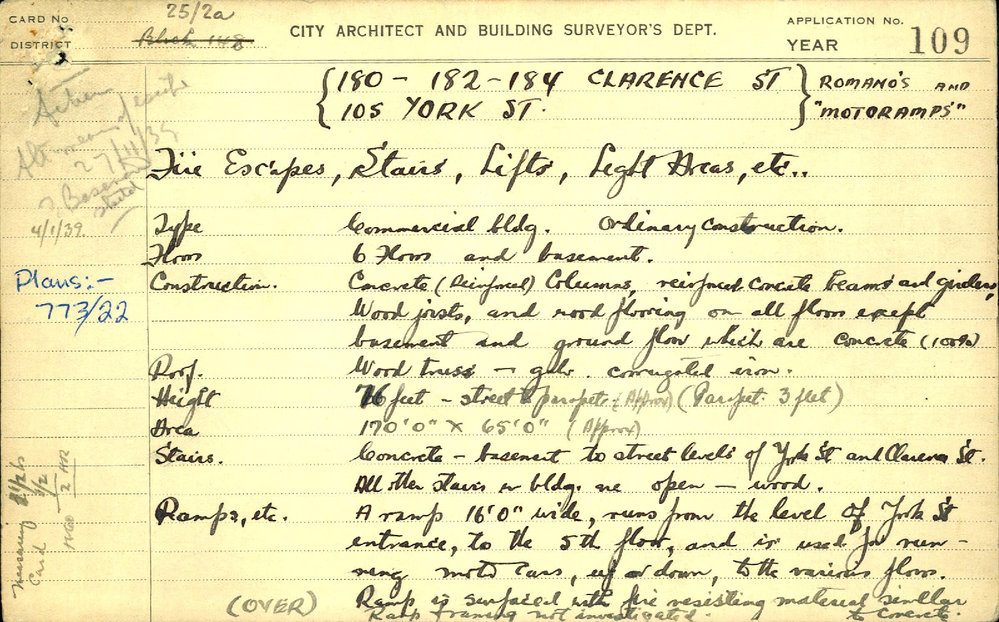 CARD No
25/2a
CITY ARCHITECT AND BUILDING SURVEYOR'S DEPT.
APPLICATION No.
DISTRICT
Block 148
YEAR
109
180 - 182 - 184 CLARENCE ST
105 YORK ST.
ROMANO'S AND
"MOTORAMPS"
27/11/39
Basement
started
4/1/39.
Fire Escapes, Stairs, Lifts, Light Areas, etc..
Type Commercial bldg. Ordinary construction.
Floors 6 Floors and basement.
Plans:-
773/22
Construction. Concrete (Reinforced) Columns, reinforced concrete beams and girders,
Wood joists, and wood flooring on all floors except
basement and ground floor which are concrete (100%)
Roof. Wood truss - galv. corrugated iron.
Height 76 feet - street to parapet (Approx) (Parapet 3 feet)
Area 170'0" x 65'0" (Approx)
Stairs. Concrete - basement to street levels of York St and Clarence St.
All other stairs in bldg. are open - wood.
Ramps, etc. A ramp 16'0" wide, runs from the level of York St
entrance, to the 5th floor, and is used for run-
ning motor cars, up or down, to the various floors.
Ramp is surfaced with fire resisting material similar
to concrete.
Ramp framing not investigated.
(OVER)
Card